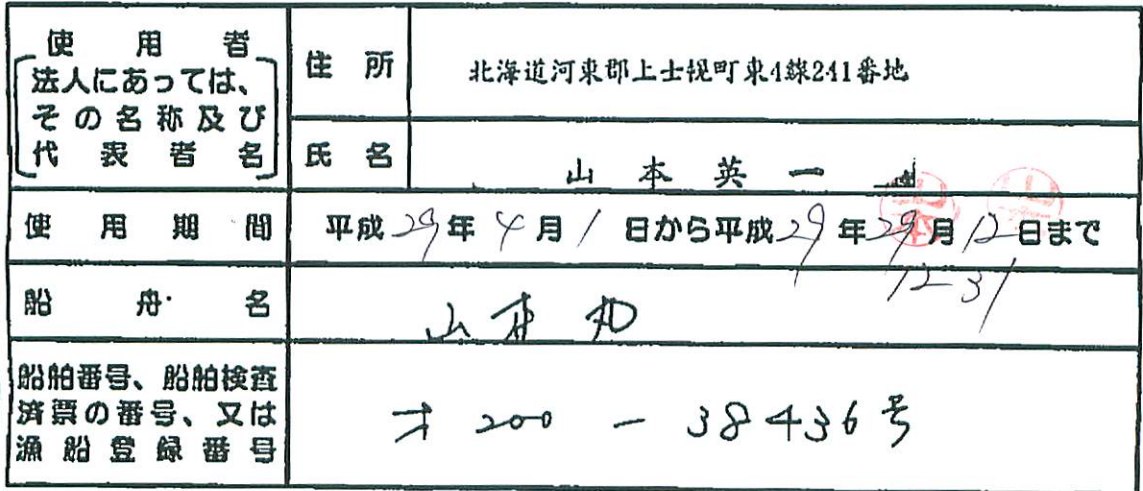 使用者
法人にあっては、
その名称及び
代表者名
住所
北海道河東郡上士幌町東4線241番地
氏名
山本英一
使用期間
平成29年4月1日から平成29年29月12日まで
12 31
船舟名
山本丸
船舶番号、船舶検査
済票の番号、又は
漁船登録番号
才200-38436号